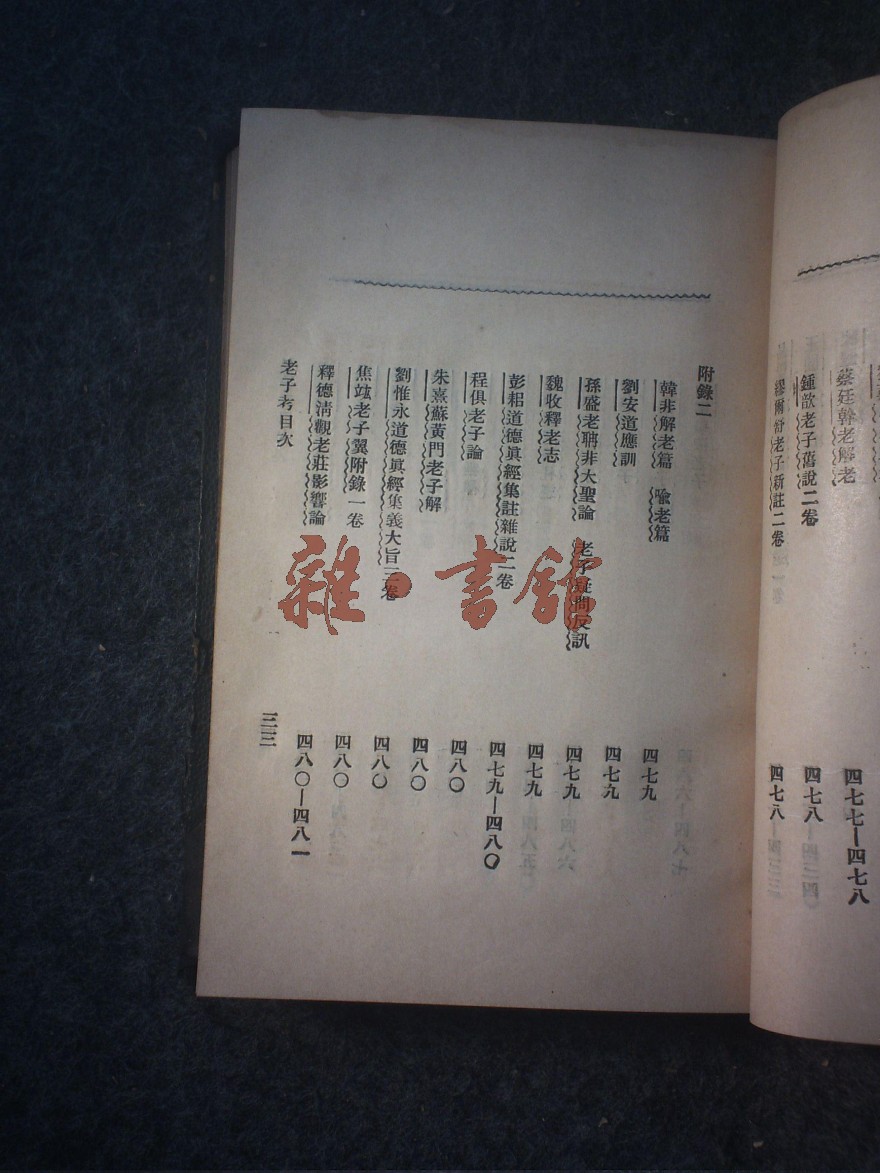 蔡廷幹老解老 四七七—四七八
鍾歆老子舊說二卷 四七八
繆爾紓老子新註二卷 四七八
附錄二
韓非解老篇 喩老篇 四七九
劉安道應訓 四七九
孫盛老聃非大聖論 老子疑問反訊 四七九
魏收釋老志 四七九
彭耜道德眞經集註雜說二卷 四七九—四八〇
程俱老子論 四八〇
朱熹蘇黃門老子解 四八〇
劉惟永道德眞經集義大旨三卷 四八〇
焦竑老子翼附錄一卷 四八〇
釋德淸觀老莊影響論 四八〇—四八一
老子考目次 三三
雜·書館